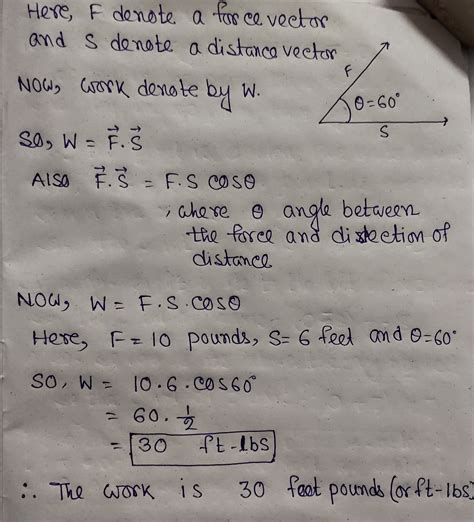 Here, F denote a force vector
and S denote a distance vector
NOW, work denote by W.
F
θ=60°
S
SO, W = F⃗.S⃗
Also F⃗.S⃗ = F.S cosθ
, where θ angle between
the force and direction of
distance
NOW, W = F.S.cosθ
Here, F = 10 pounds, S= 6 feet and θ=60°
SO, W = 10.6.cos60°
= 60.1/2
= 30 ft-lbs
∴ The work is 30 foot pounds (or ft-lbs)